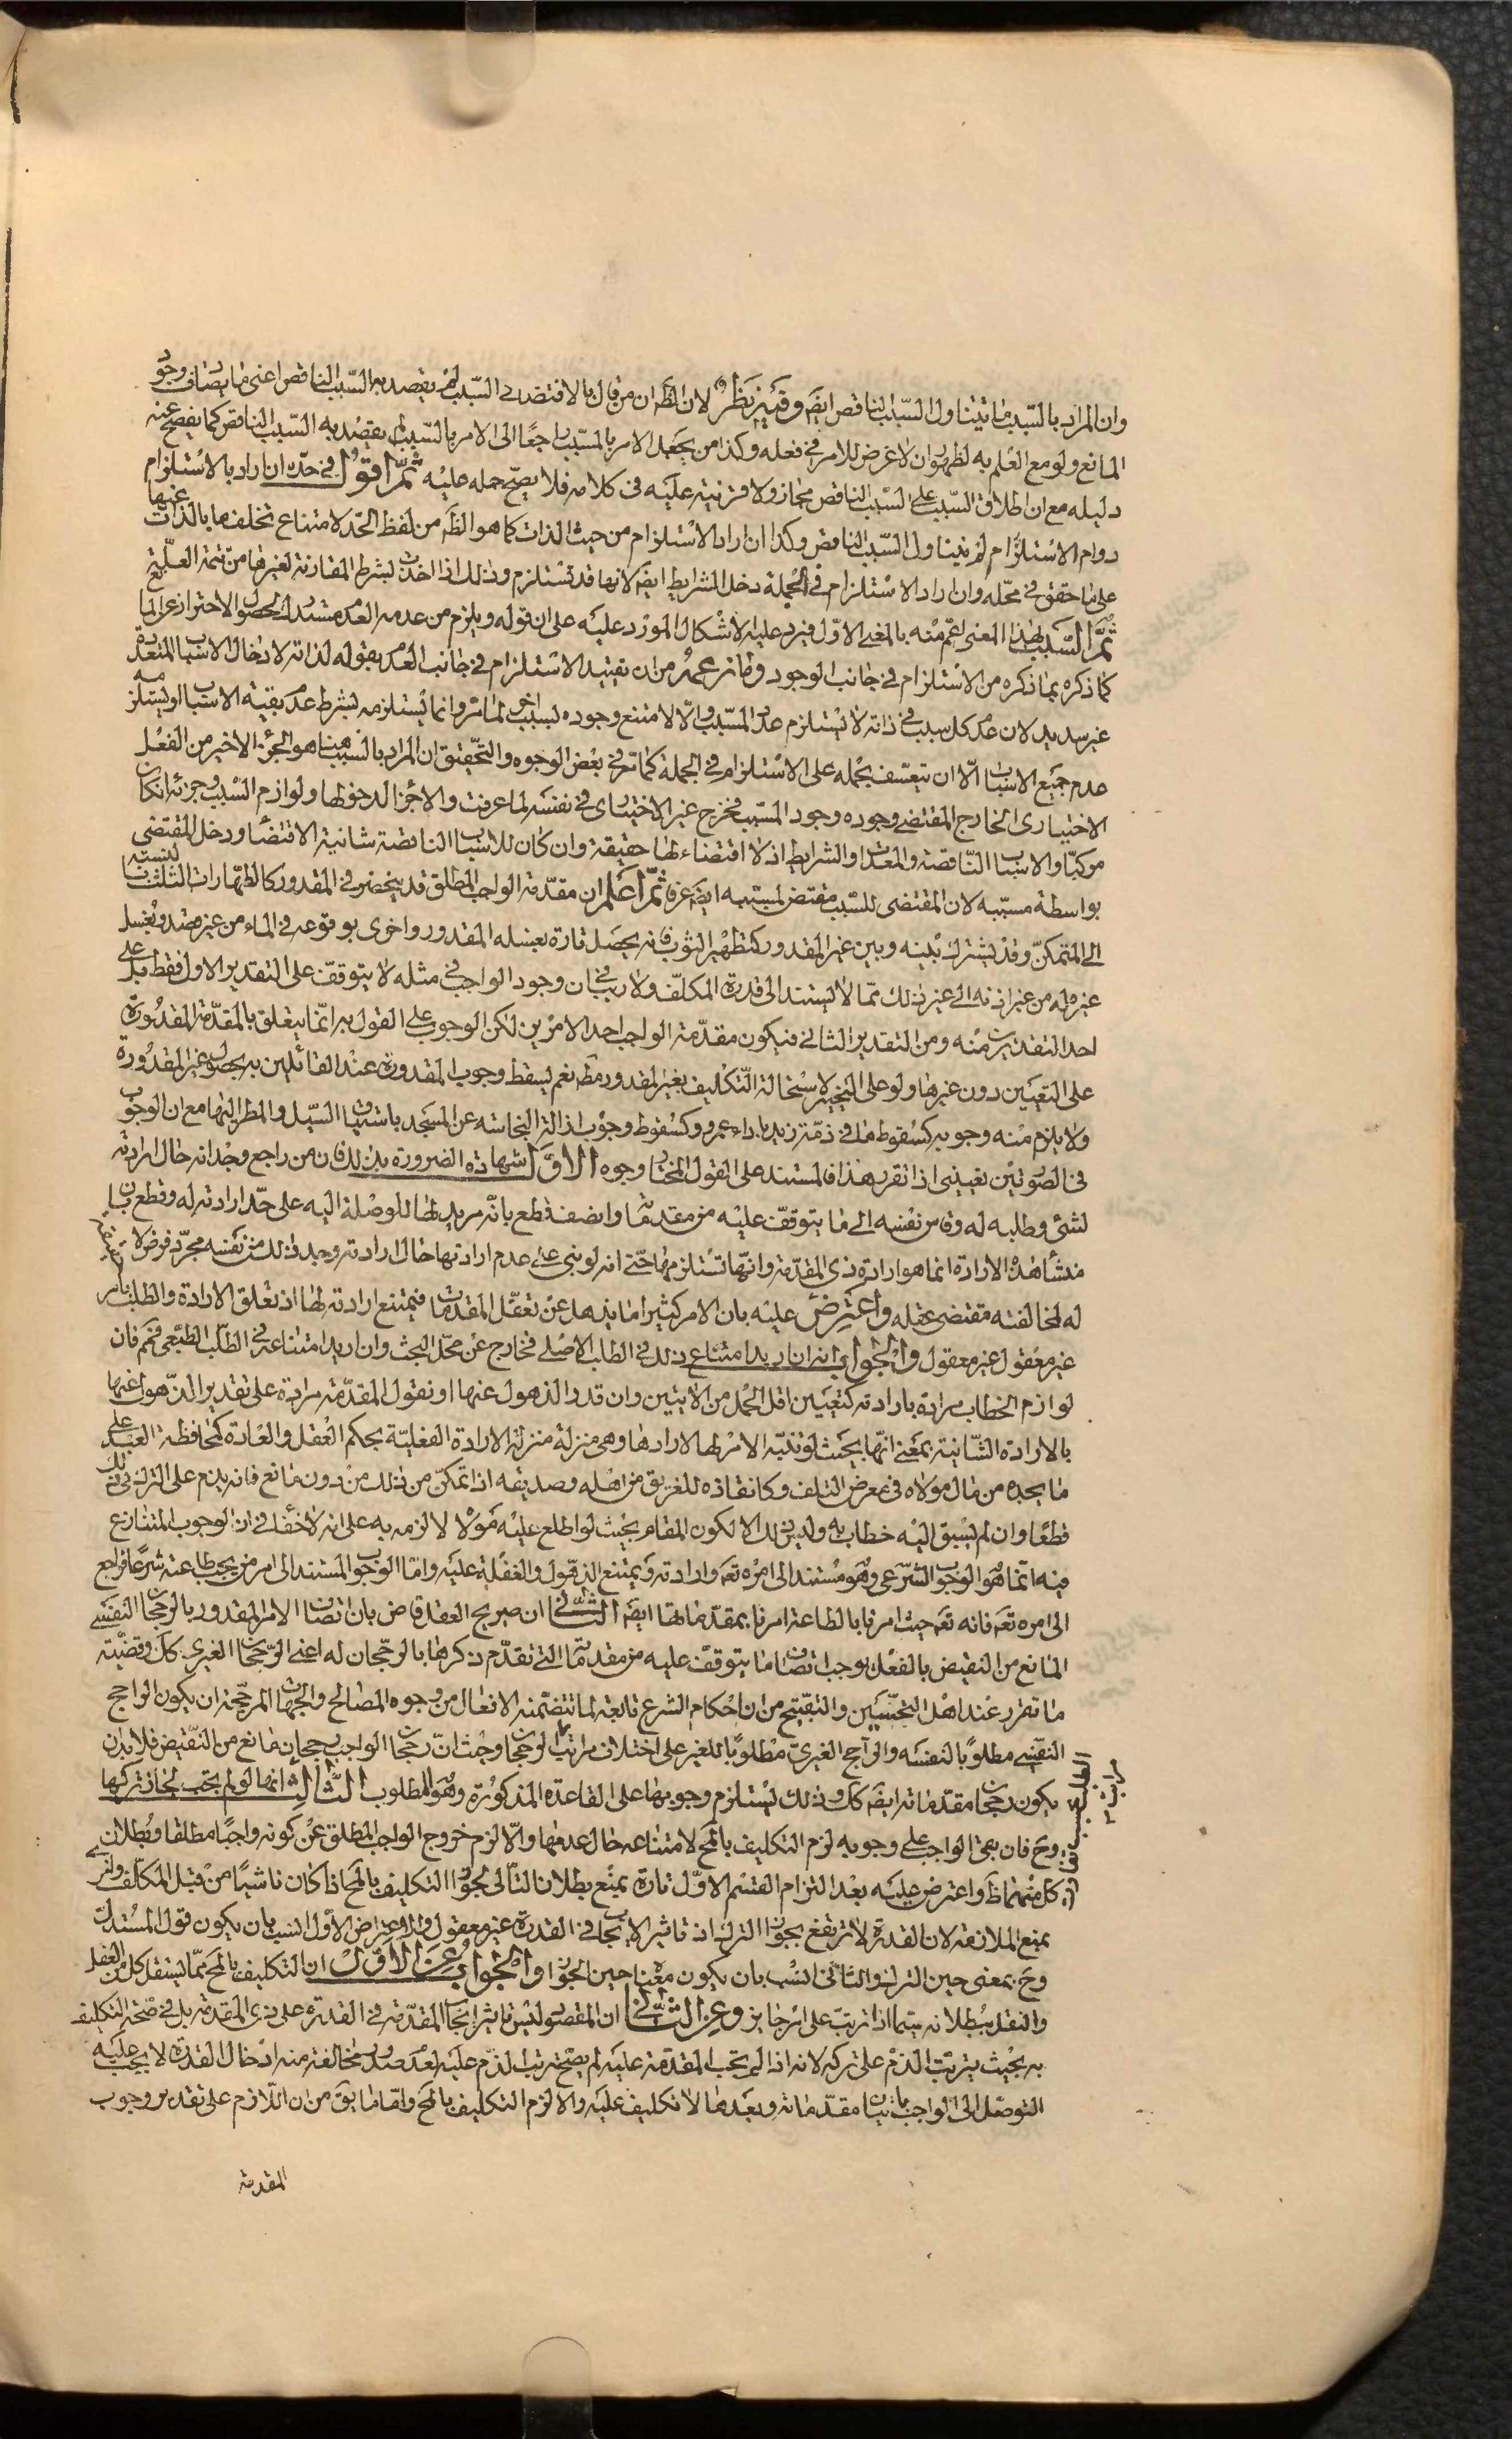 وان المراد بالسّبب ما يتناول السّبب الناقص ايضَ وفيهِ نظرٌ لان الظَ ان من قال بالاقتضاء في السّبب لم يقصد به السّبب الناقص اعني ما يضاف وجود
المانع ولو مع العلم به لظهور ان لا غرض للامر في فعله وكذا من يجعل الامر بالمسّبب راجعًا الى الامر بالسّبب لم يقصد به السّبب الناقص كما يفصح عنه
دليله مع ان اطلاق السّبب على السّبب الناقص مجاز ولا قرنية عليَه في كلامه فلا يصحّ حمله عليْه ثمّ اقول في حدّه ان اراد بالاستلزام
دوام الاستلزام لم يتناول السّبب الناقص وكذا ان اراد الاستلزام من حيث الذات كما هو الظَ من لفظ الحدّ لامتناع تخلفها بالذات عنها
على ما حقق في محّله وان اراد الاستلزام في الجملة دخل الشرايط ايضَ لانها قد تستلزم وذلك اذا اخذت بشرط المقارنة لغيرها من تتمة العلّة
ثمّ السّبب بهذا المعنى اعمّ منه بالمعنى الاوّل فيرد عليه الاشكال المورد عليَه على ان قوله ويلزم من عدمه العدم مستدرك لحصول الاحتراز عن المانع
كما ذكره بما ذكره من الاستلزام في جانب الوجود وما زعمهُ من ان تقييد الاستلزام في جانب العدم بقوله لذاته لادخال الاسباب المتعدّدة
غير سديد لان عدم كل سبب في ذاته لا يستلزم عدم المسّبب والّا لامتنع وجوده بسبب اخر لما مر وانما يستلزمه بشرط عدم بقية الاسباب او يستلزمه
عدم جميع الاسباب الّا ان يتعسّف بحمله على الاستلزام في الجملة كما مرّ في بعْض الوجوه والتّحقيق ان المراد بالسّبب هيهنا هو الجزؤ الاخير من الفعْل
الاختيارى الخارج المقتضي وجوده وجود المسّبب فخرج غير الاختيارى في نفسَه لما عرفت والاجزَاء لدخولها ولوازم السّبب وجزئه ان كان
مركبًا والاسباب النّاقصة والمعدّات والشرايط اذ لا اقتضاء لها حقيقة وان كان للاسباب الناقصة شانية الاقتضاء ودخل المقتضى
بواسطة مسبّبه لان المقتضى للسّبب مقتض لمسبّبه ايضَ عرفًا ثمّ اعلم ان مقدّمة الواجب المطلق قد ينحصر في المقدور كالطّهارات الثلث بالنسبة
الى المتمكنّ وقد يشترك بيْنه وبين غير المقدور كتطهير الثوب فانه يحصَل تارة بغسله المقدور واخرى بوقوعه في الماء من غير قصد وبغسل
غيره له من غير اذنه الى غير ذلك ممّا لا يستند الى قدرة المكلّف ولا ريب في ان وجود الواجب في مثله لا يتوقفّ على التقدير الاول فقط بل على
احد التقديرين منْه ومن التقدير الثاني فيكون مقدّمة الواجب احد الامرين لكن الوجوب على القول به انمّا يتعلق بالمقدّمة المقدُورة
على التعيَين دون غيرها ولو على التخيير لاستحالة التّكليف بغير المقدور مطَ نعم يسقط وجوب المقدورة عنْد القائلين به بحصول غير المقدُورة
ولا يلزم منْه وجوبه كسُقوط ما في ذمّة زيد باداء عمرو وكسُقوط وجوْب ازالة النجاسَة عن المسجد باستيلاء السّيل والمطر اليها مع ان الوجوْب
في الصّورتيْن تعييني اذا تقرر هذا فالمستند على القول المختار وجوه الاوّل شهادة الضرورة بذلك فان من راجع وجْدانه حال ارادته
لشئ وطلبه له وقاس نفسَه الى ما يتوقفّ عليْه من مقدماته وانصف قطع بانّه مريد لها للوصْلة اليه على حّد ارادته له وقطع بان
منشأ هذه الارادة انما هو ارادة ذى المقدّمة وانّها تستلزمها حتّى انه لو بنى على عدم ارادتها حال ارادته وجد ذلك من نفسَه مجرّد فرض لا
له لمخالفته مقتضى عقله واعترض عليْه بان الامر كثيرا ما يذهل عن تعقّل المقدمات فيمتنع ارادته لها اذ تعلق الارادة والطلب بامر
غير معْقول غير معقول والجواب انه ان اريد امتناع ذلك في الطلب الاصلى فخارج عن محّل البحث وان اريد امتناعه في الطّلب الطبّعى فممَ فان
لوازم الخطاب مرادة بارادته كتعيَين اقل الحمْل من الآيتين وان قدر الذهول عنها او نقول المقدّمة مرادة على تقدير الذّهول عنها
بالارادة الشّانية بمعَنى انّها بحيَث لو تنبّه الامر لها لارادها وهى منزلة منزلة الارادة الفعْليّة بحكم العقل والعَادة كمحافظة العبد على
ما يجده من مال مولاه في معرض التلف وكانقاذه للغريق من اهْله وصديقه اذا تمّكن من ذلك من دون مانع فانه يذم على الترك في ذلك
قطعًا وان لم يسبق اليْه خطاب به وليس ذلك الا لكون المقام بحيث لو اطلع عليْه مولاه لالزمه به على انه لا خفاء في ان الوجوب المتنازع
فيه انّما هو الوجوب الشرّعى وهو مُستند الى امره تعَ وارادته ويمتنع الذهول والغفلة عليَه وامّا الوجوب المستند الى امر من يجب طاعته شرعًا فراجع
الى امره تعَ فانه تعَ حيث امرنا بالطاعة امرنا بمقدّماتها ايضَ الثّاني ان صريح العقل قاض بان اتصاف الامر المقدور بالرجحان النفسي
المانع من النقيض بالفعْل يوجب اتصاف ما يتوقفّ عليه من مقدماته التي تقدّم ذكرها بالرجّحان له اعني الرّجحان الغيرى ككَ وقضيّة
ما تقرر عنْد اهْل التحسّيين والتقبّيح من ان احْكام الشرع تابعة لما تتضمّنه الافعال من وجوه المصَالح والجهات المرجّحة ان يكون الواجح
النفّسي مطلوبًا لنفسَه والرآجح الغيرىّ مطْلوبًا للغير على اختلاف مراتب الرجحان وحيْث ان رجحان الواجب رجحان مانع من النّقيض فلا بدّ ان
يكون رجحان مقدماته ايضَ ككَ وذلك يستلزم وجوبها على القاعدة المذكورة وهُو المطلوب الثّالث انها لو لم يجب لجاز تركها
وحَ فان بقى الواجب على وجوبه لزم التكليف بالمحَ لامتناعه حال عدمها والّا لزم خروج الواجب المطلق عن كونه واجبًا مطلقا وبُطلان
كل منهما ظَ واعترض عليَه بعْد التزام القسْم الاوّل تارة بمنْع بطلان التّالى لجواز التكليف بالمحَ اذا كان ناشيًا من قبل المكلّف واخرى
بمنع الملازمة لان القدرة لا ترتفع بجواز الترك اذ تاثير الايجاب في القدرة غير معقول والاعتراض الاوّل انسب بان يكون قول المستدل
وحَ بمعنى حين الترك والثّاني انسب بان يكون معْناه حين الجواز والجواب عن الاوّل ان التكليف بالمحَ ممّا يستقل كل من العقل
والنقل ببُطلانه سيّما اذا ترتب على امر جايز وعن الثّاني ان المقصود ليس تاثير ايجاب المقدّمة في القدرة على ذى المقدمة بل في صّحة التكليف
به بحيْث يترتب الذمّ على تركه لانه اذا لم يجب المقدّمة عليَه لم يصّح ترتب الذّم عليَه لعدم صدور مخالفة منه اذ حال القدرة لا يجب عليَه
التوصّل الى الواجب باتيان مقدّماته وبعَدها لا تكليف عليَه والا لزم التكليف بالمحَ وامّا ما يقَ من ان اللّازم على تقدير وجوب
المقدمة